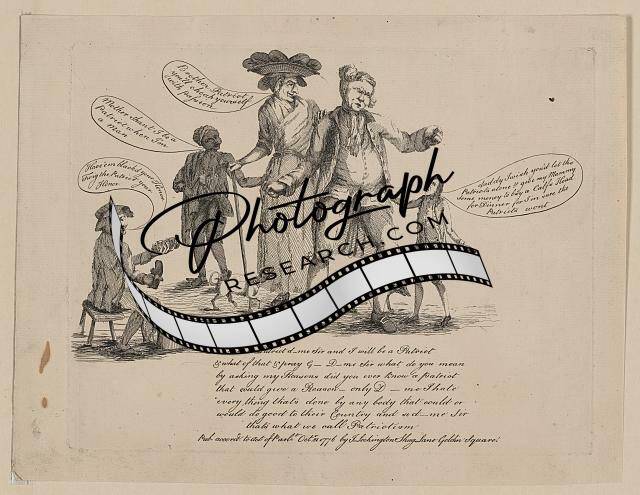 Brother Patriot
you'll choak yourself
with passion
Mother shan't I be a
Patriot when I'm
a Man
Have 'em black'd your Honor
Forty the Patriot your
Honor
daddy I wish you'd let the
Patriots alone & give my Mammy
some money to buy a Calf's Head
for Dinner for I'm sure the
Patriots wont
Photograph
RESEARCH.COM
d—me Sir and I will be a Patriot
& what of that & pray G— D—me Sir what do you mean
by asking my Reasons did you ever know a patriot
that could give a Reason — only D—me I hate
every thing that's done by any body that could or
would do good to their Country and so d—me Sir
thats what we call Patriotism
Pub. accordg to act of Parlt. Octr. 1776 by J. Lockington Shug Lane Golden Square.